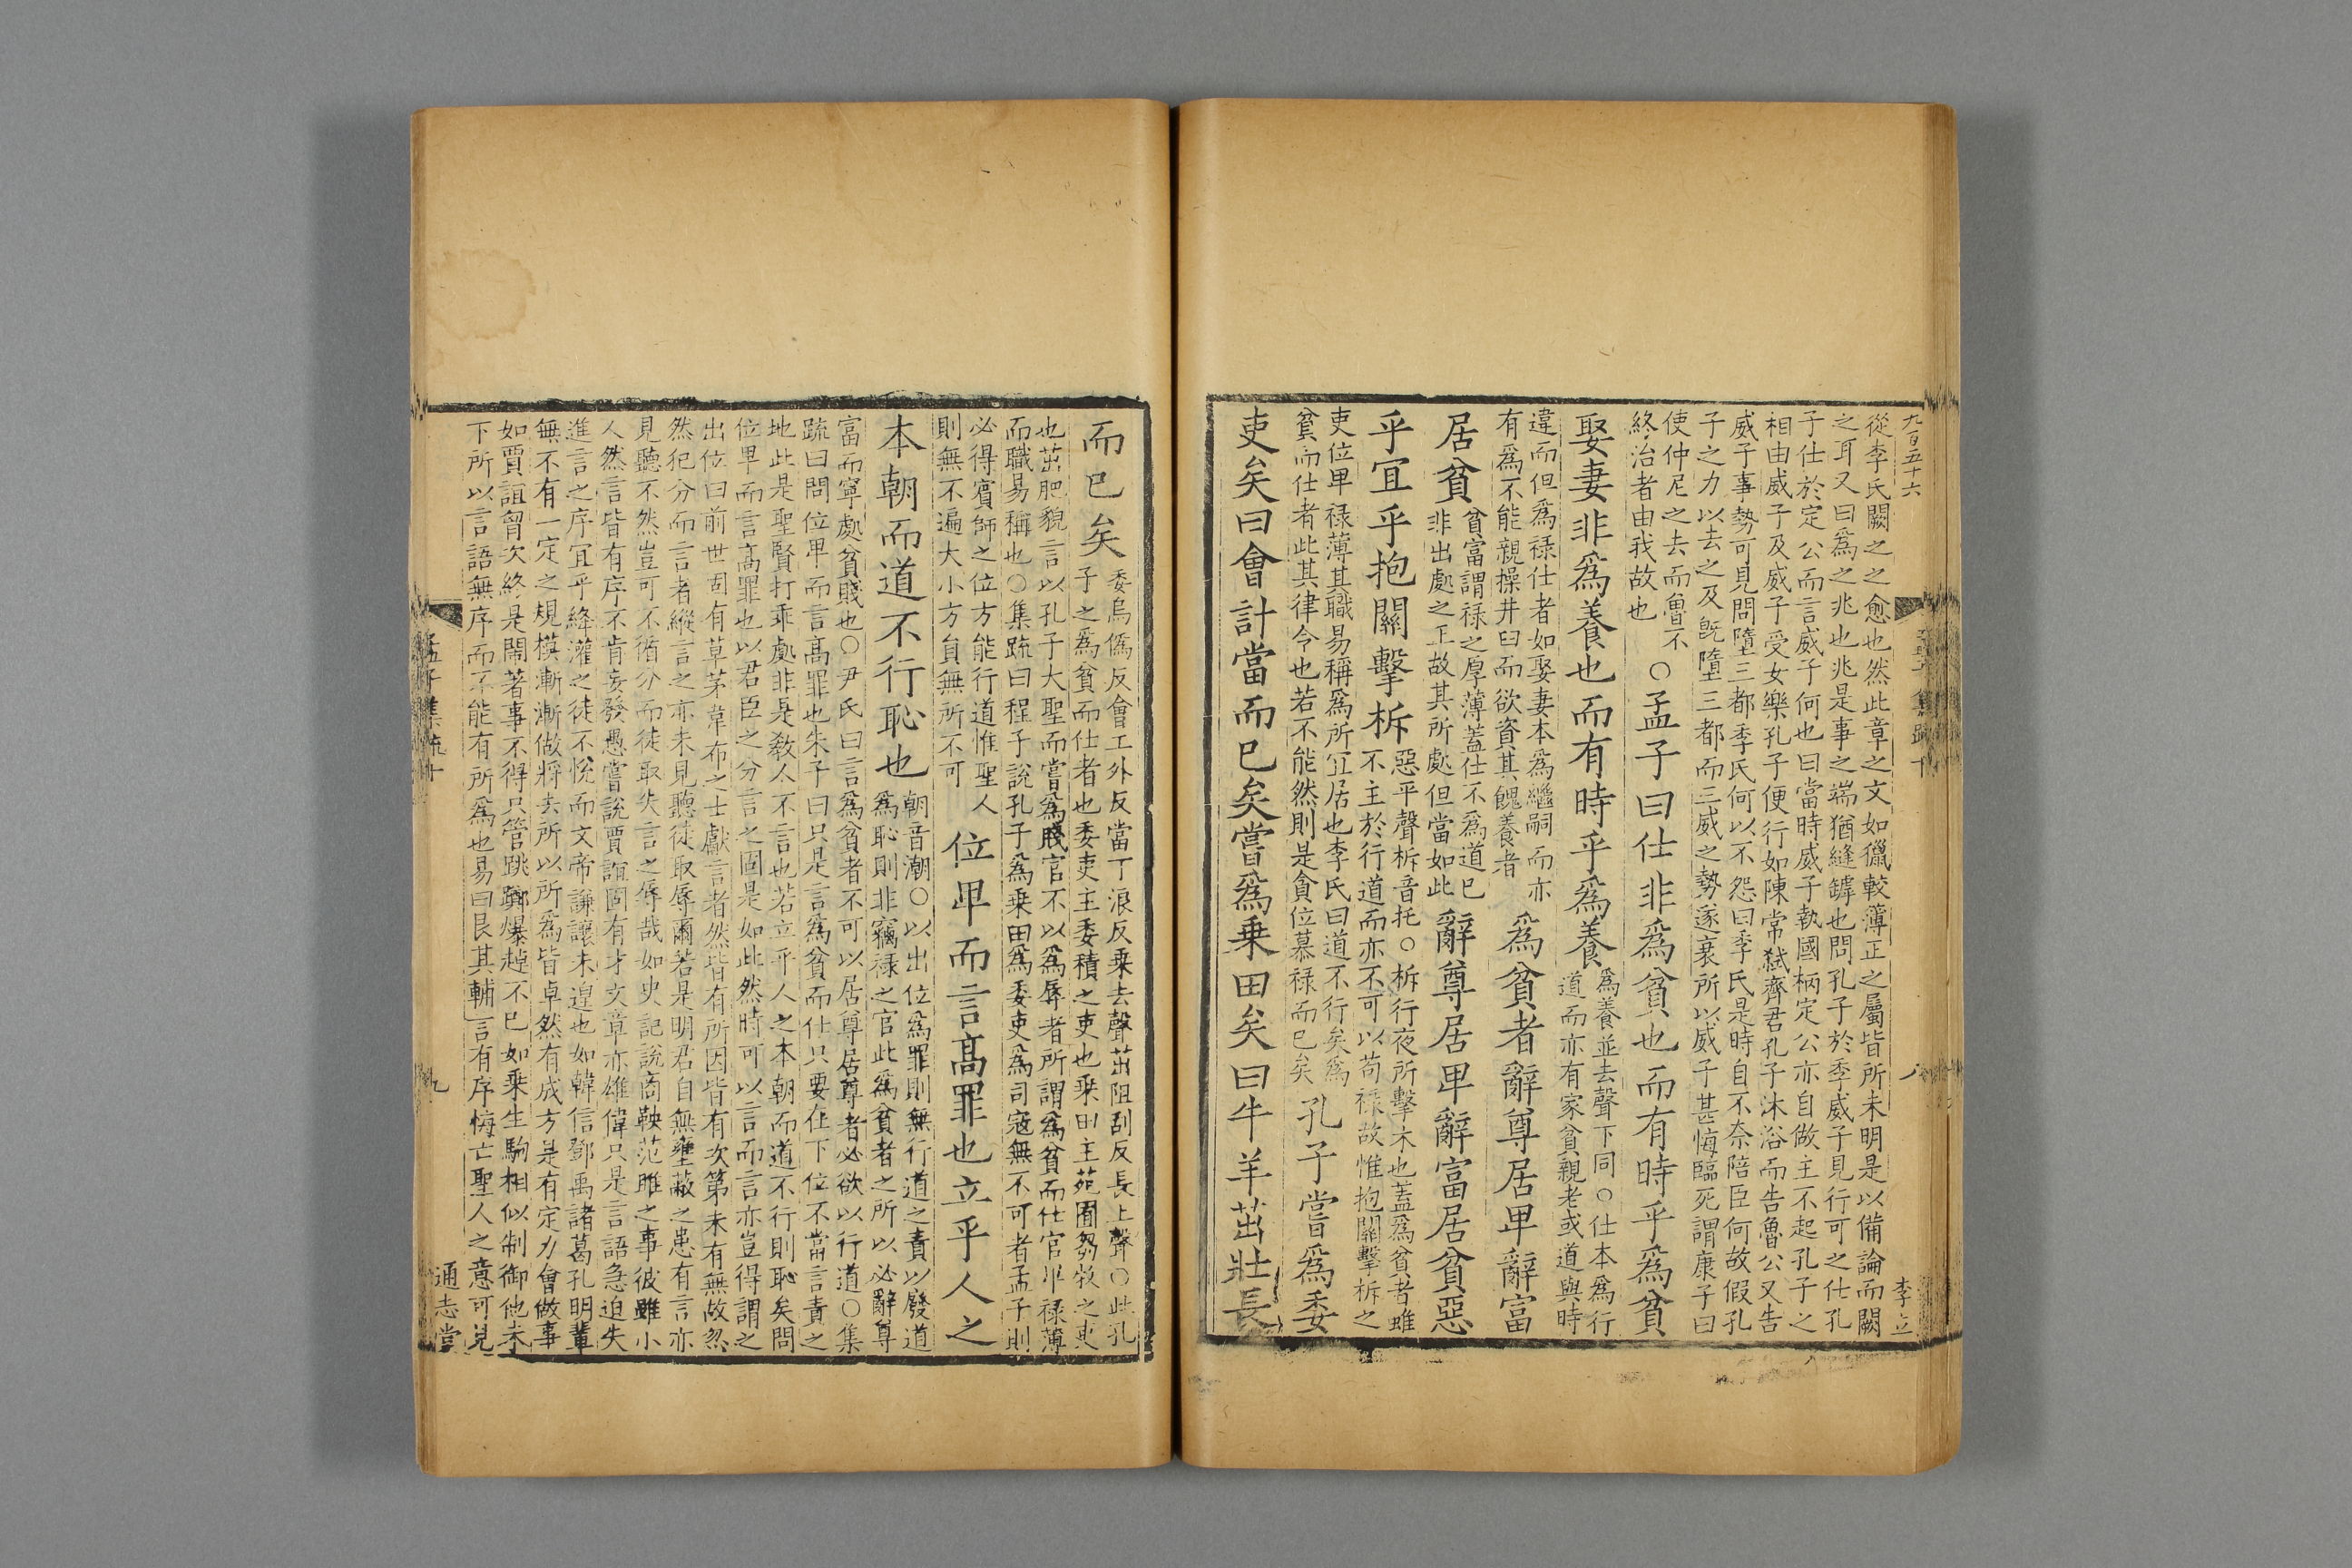 九百五十六
從李氏闕之之愈也然此章之文如獵較簿正之屬皆所未明是以備論而闕
之耳又曰爲之兆也兆是事之端猶縫罅也問孔子於季威子見行可之仕孔
子仕於定公而言威子何也曰當時威子執國柄定公亦自做主不起孔子之
相由威子及威子受女樂孔子便行如陳常弑齊君孔子沐浴而告魯公又告
威子事勢可見問墮三都季氏何以不怨曰季氏是時自不奈陪臣何故假孔
子之力以去之及旣墮三都而三威之勢遂衰所以威子甚悔臨死謂康子曰
使仲尼之去而魯不
終治者由我故也
○孟子曰仕非爲貧也而有時乎爲貧
娶妻非爲養也而有時乎爲養
爲養並去聲下同○仕本爲行
道而亦有家貧親老或道與時
違而但爲祿仕者如娶妻本爲繼嗣而亦
有爲不能親操井臼而欲資其餽養者
爲貧者辭尊居卑辭富
居貧
貧富謂祿之厚薄蓋仕不爲道已
非出處之正故其所處但當如此
辭尊居卑辭富居貧惡
乎宜乎抱關擊柝
惡平聲柝音托○柝行夜所擊木也蓋爲貧者雖
不主於行道而亦不可以苟祿故惟抱關擊柝之
吏位卑祿薄其職易稱爲所宜居也李氏曰道不行矣爲
貧而仕者此其律令也若不能然則是貪位慕祿而已矣
孔子嘗爲委
吏矣曰會計當而已矣嘗爲乗田矣曰牛羊茁壯長
李立
而已矣
委烏僞反會工外反當丁浪反乗去聲茁阻刮反長上聲○此孔
子之爲貧而仕者也委吏主委積之吏也乗田主苑囿芻牧之吏
也茁肥貌言以孔子大聖而嘗爲賤官不以爲辱者所謂爲貧而仕官卑祿薄
而職易稱也○集疏曰程子說孔子爲乗田爲委吏爲司寇無不可者孟子則
必得賓師之位方能行道惟聖人
則無不遍大小方貟無所不可
位卑而言髙罪也立乎人之
本朝而道不行恥也
朝音潮○以出位爲罪則無行道之責以廢道
爲恥則非竊祿之官此爲貧者之所以必辭尊
富而寧處貧賤也○尹氏曰言爲貧者不可以居尊居尊者必欲以行道○集
疏曰問位卑而言髙罪也朱子曰只是言爲貧而仕只要在下位不當言責之
地此是聖賢打乖處非是敎人不言也若立乎人之本朝而道不行則恥矣問
位卑而言髙罪也以君臣之分言之固是如此然時可以言而言亦豈得謂之
出位曰前世固有草茅韋布之士獻言者然皆有所因皆有次第未有無故忽
然犯分而言者縱言之亦未見聽徒取辱爾若是明君自無壅蔽之患有言亦
見聽不然豈可不循分而徒取失言之辱哉如史記說商鞅范雎之事彼雖小
人然言皆有序不肯妄發愚嘗說賈誼固有才文章亦雄偉只是言語急迫失
進言之序宜乎絳灌之徒不悅而文帝謙讓未遑也如韓信鄧禹諸葛孔明輩
無不有一定之規模漸漸做將去所以所爲皆卓然有成方是有定力會做事
如賈誼胷次終是鬧著事不得只管跳躑爆趠不已如乗生駒相似制御他未
下所以言語無序而不能有所爲也易曰艮其輔言有序悔亡聖人之意可見
孟子集疏十
九
通志堂